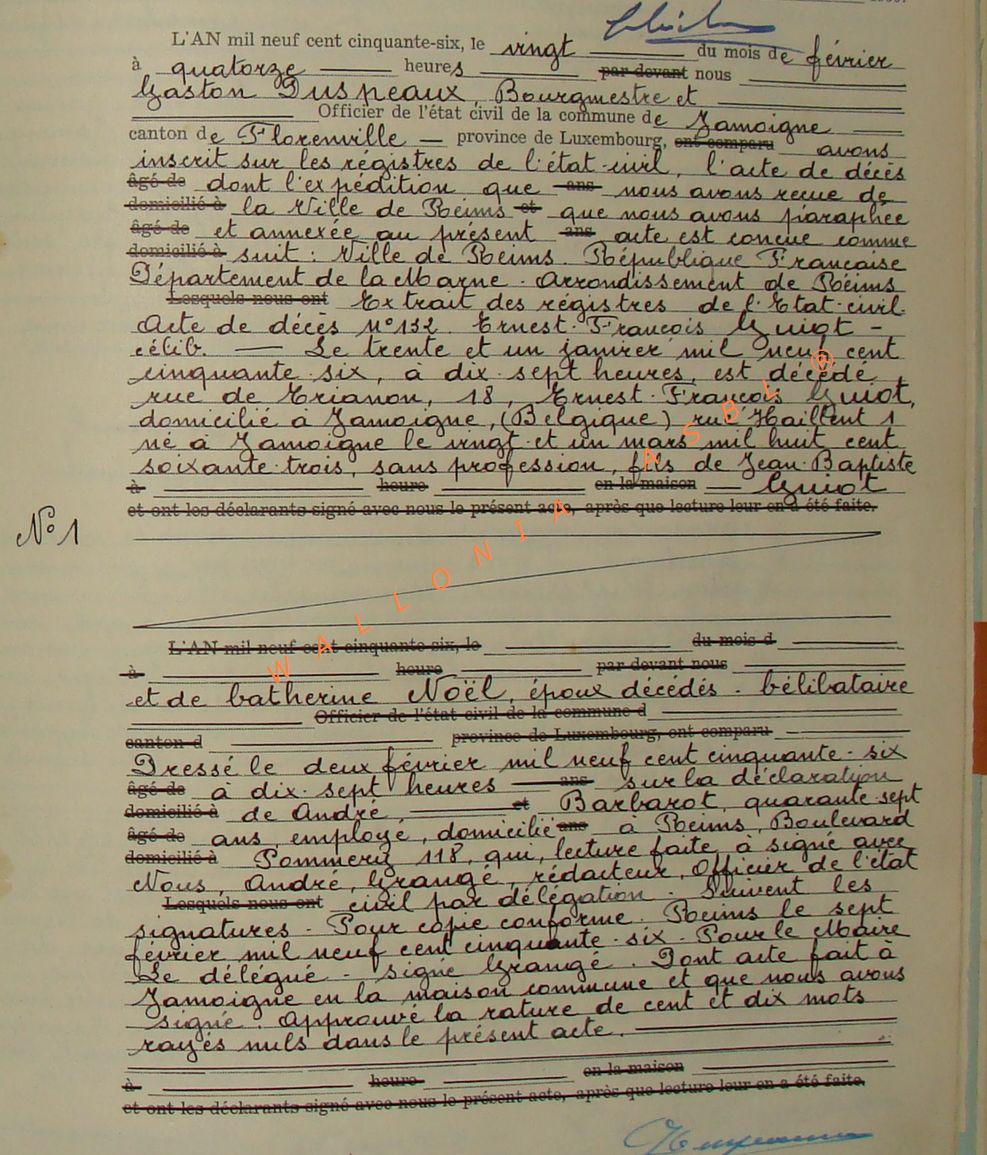 L'AN mil neuf cent cinquante-six, le vingt du mois de février
à quatorze heures par devant nous
Gaston Duspeaux, Bourgmestre et
Officier de l'état civil de la commune de Jamoigne
canton de Florenville — province de Luxembourg, ont comparu avons
inscrit sur les régistres de l'état-civil, l'acte de décès
âgé de dont l'expédition que ans nous avons recue de
domicilié à la Ville de Reims et que nous avons paraphée
âgé de et annexée au présent ans acte est concue comme
domicilié à suit : Ville de Reims. République Francaise
Département de la Marne - Arrondissement de Reims
Lesquels nous ont Extrait des régistres de l'Etat-civil.
Acte de décès N° 132. Ernest-Francois Guiot -
célib. — Le trente et un janvier mil neuf cent
cinquante-six, à dix-sept heures, est décédé
rue de Trianon, 18, Ernest-Francois Guiot,
domicilié à Jamoigne, (Belgique) rue Haillent 1
né à Jamoigne le vingt-et un mars mil huit cent
soixante-trois, sans profession, fils de Jean-Baptiste
à heure en la maison — Guiot
et ont les déclarants signé avec nous le présent acte, après que lecture leur en a été faite.
N° 1
WALLONIA ASBL ®
L'AN mil neuf cent cinquante-six, le du mois d
à heure par devant nous
et de Catherine Noël, époux décédés - Célibataire
Officier de l'état civil de la commune d
canton d province de Luxembourg, ont comparu
Dressé le deux février mil neuf cent cinquante-six
âgé de à dix-sept heures — ans sur la déclaration
domicilié à de André, et Barbarot, quarante-sept
âgé de ans, employé, domicilié ans à Reims, Boulevard
domicilié à Pommery 118, qui, lecture faite, à signé avec
Nous, André, Grangé, rédacteur, Officier de l'état
Lesquels nous ont civil par délégation - Suivent les
signatures - Pour copie conforme. Reims le sept
février mil neuf cent cinquante-six - Pour le Maire
Le délégué - signé Grangé. Dont acte fait à
Jamoigne en la maison commune et que nous avons
signé. Approuvé la rature de cent et dix mots
rayés nuls dans le présent acte.
à heure en la maison
et ont les déclarants signé avec nous le présent acte, après que lecture leur en a été faite.